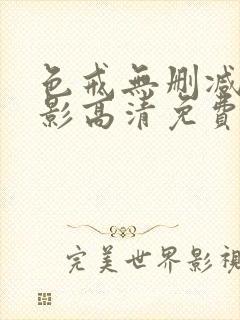 色戒無刪減
影高清免費
完美世界影視